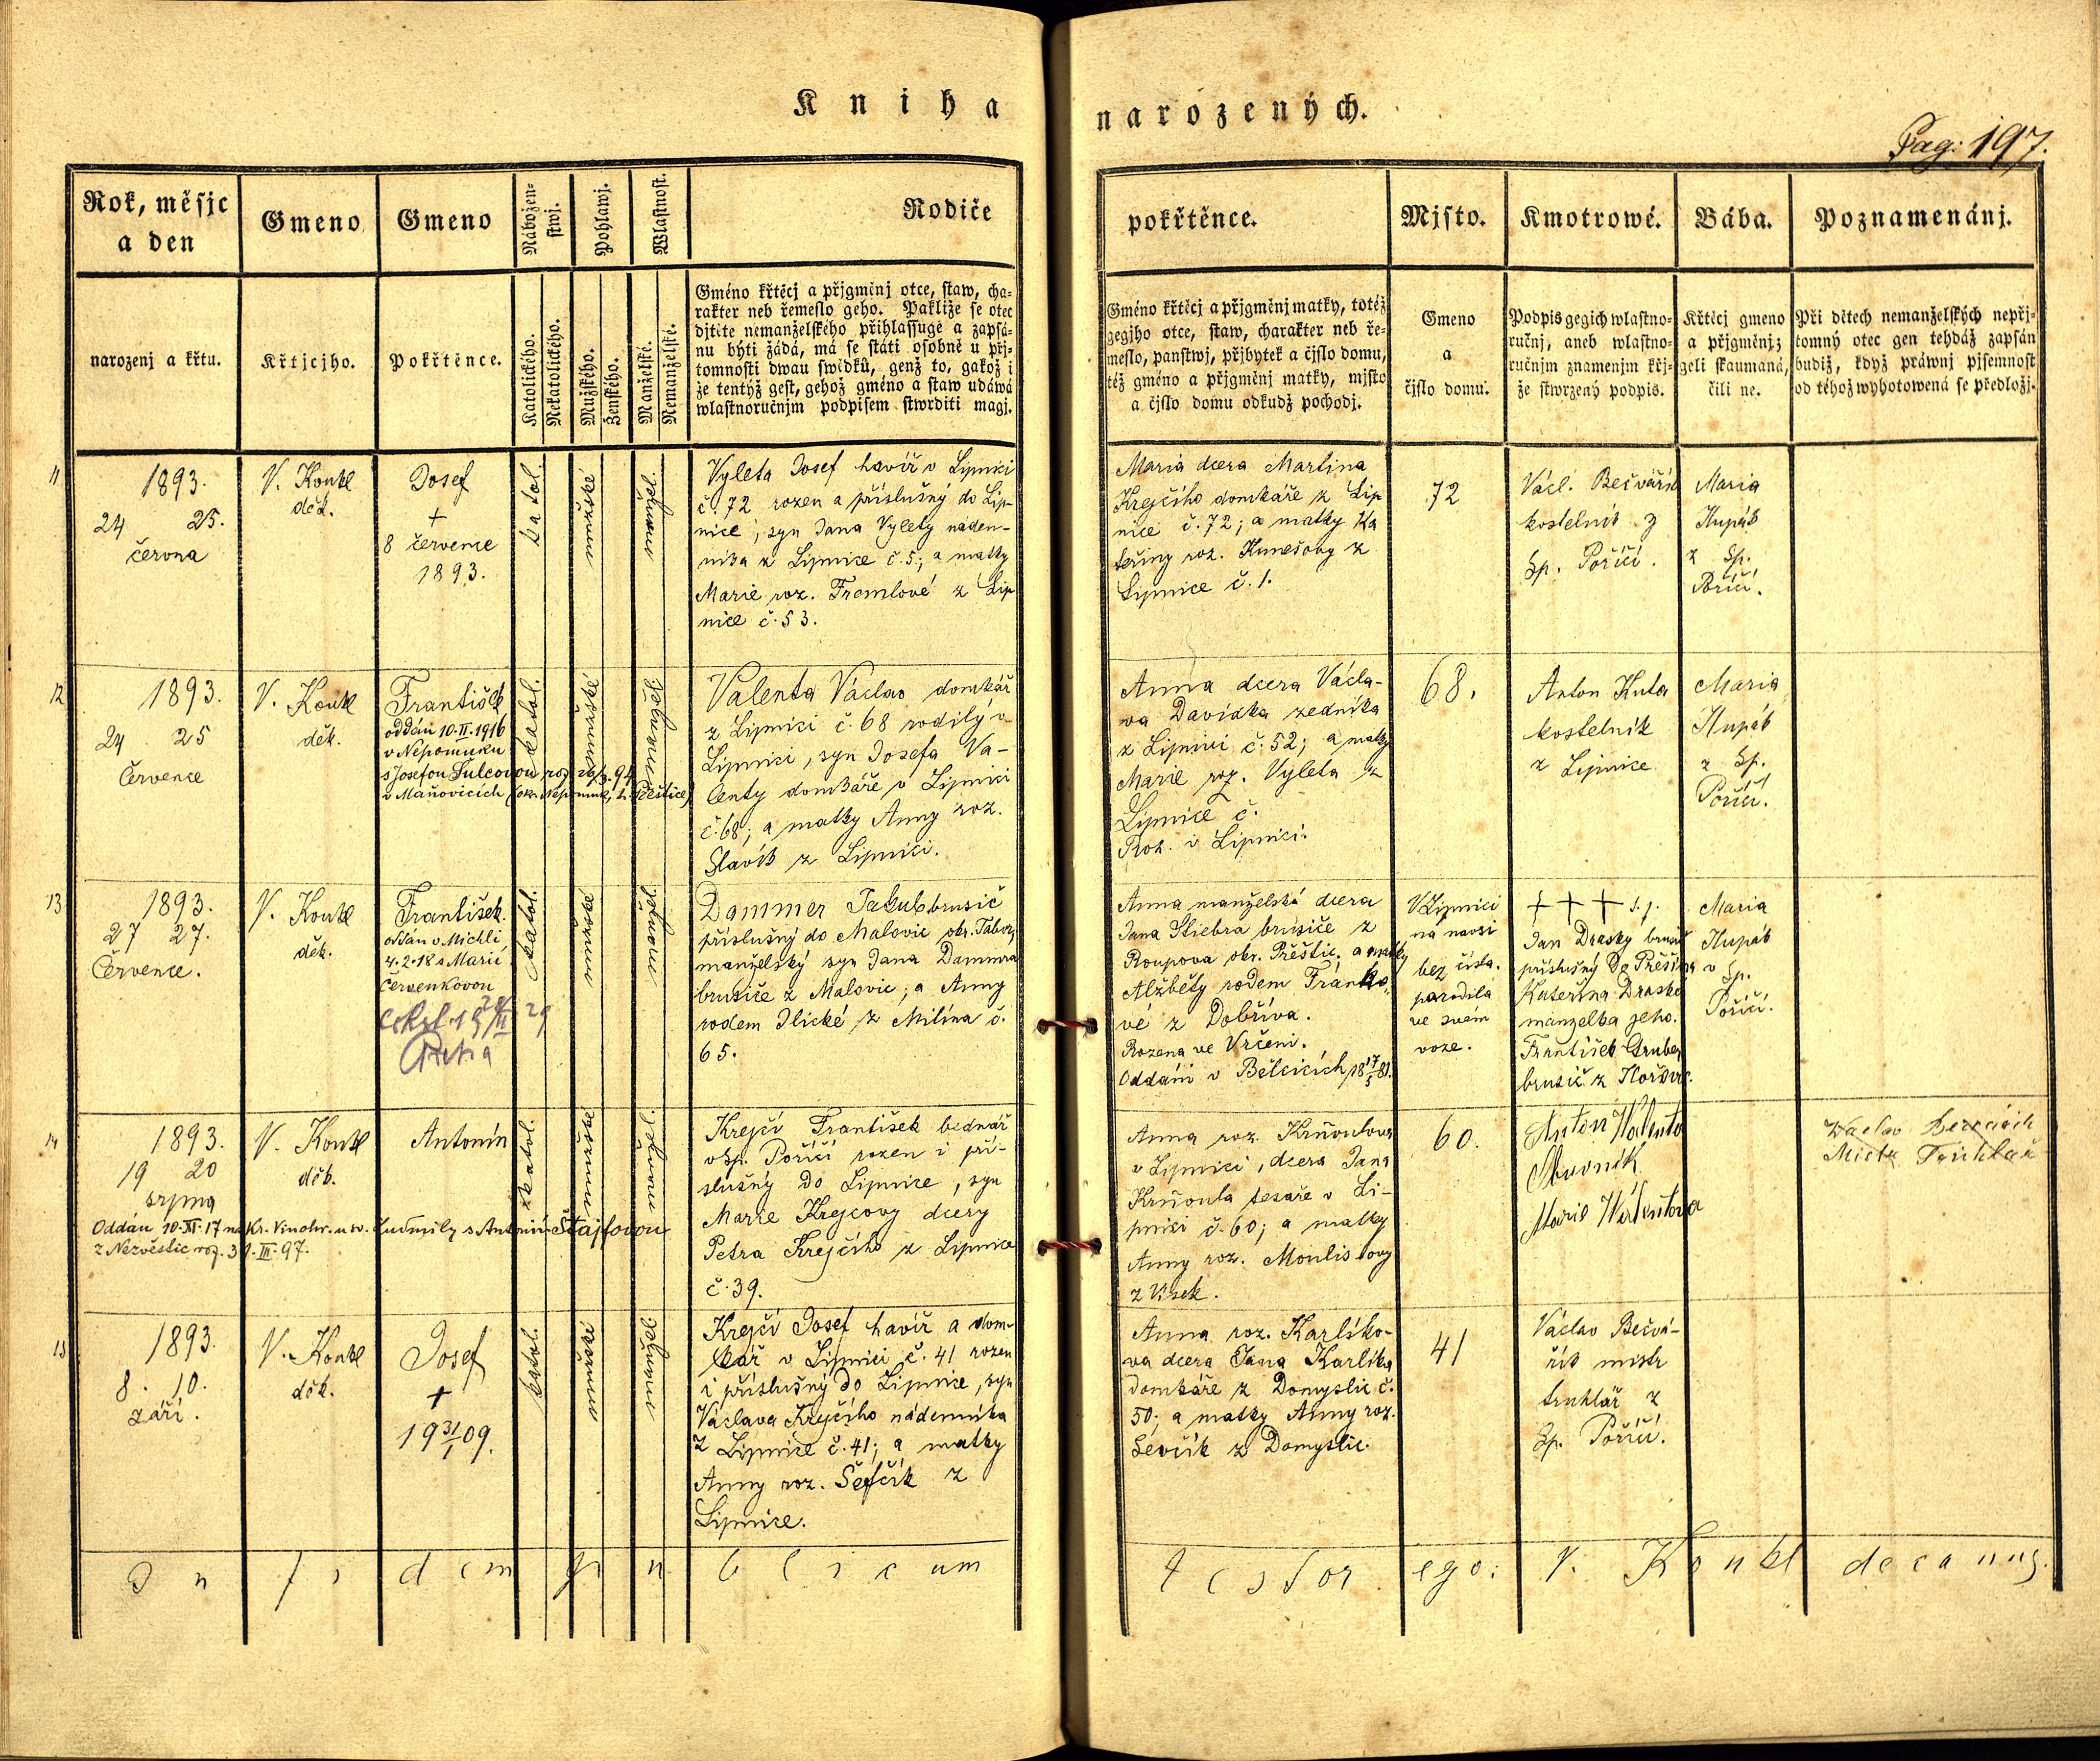 Kniha narozených.
Pag: 197.
Rok, měsjc a den
Gmeno
Gmeno
Nábožen-
stwj.
Pohlawj.
Wlastnost.
Rodiče pokřtěnce.
Mjsto.
Kmotrowé.
Bába.
Poznamenánj.
narozenj a křtu.
Křtjcjho.
Pokřtěnce.
Katolického.
Nekatolického.
Mužského.
Ženského.
Manželské.
Nemanželské.
Gméno křtěcj a přjgměnj otce, staw, cha-
rakter neb řemeslo geho. Pakliže se otec
djtěte nemanželského přihlassuge a zapsá-
nu býti žádá, má se státi osobně u přj-
tomnosti dwau swědků, genž to, gakož i
že tentýž gest, gehož gméno a staw udáwá
wlastnoručnjm podpisem stwrditi magj.
Gméno křtěcj a přjgměnj matky, totéž
gegjho otce, staw, charakter neb ře-
meslo, panstwj, přjbytek a čjslo domu,
též gméno a přjgměnj matky, mjsto
a čjslo domu odkudž pochodj.
Gmeno
a
čjslo domu.
Podpis gegich wlastno-
ručnj, aneb wlastno-
ručnjm znamenjm křj-
že stwrzený podpis.
Křtěcj gmeno
a přjgměnj;
geli skaumaná,
čili ne.
Při dětech nemanželských nepřj-
tomný otec gen tehdáž zapsán
budiž, když práwnj pjsemnost
od téhož wyhotowená se předložj.
11
1893.
24 25.
června
V. Konkl
děk.
Josef
+
8 července
1893.
katol.
mužské
manžel.
Vyleta Josef havíř v Lipnici
č. 72 rozen a příslušný do Lip-
nice, syn Jana Vylety náden-
níka z Lipnice č. 5; a matky
Marie roz. Fremlové z Lip
nice č. 53.
Maria dcera Martina
Krejčího domkáře z Lip
nice č. 72; a matky Ka
teřiny roz. Kunešovy z
Lipnice č. 1.
72
Václ. Bečvářík
kostelník z
Sp. Poříčí.
Maria
Hupák
z Sp.
Poříčí.
12
1893.
24 25
Července
V. Konkl
děk.
František
oddán 10.II.1916
v Nepomuku
s Josefou Šulcovou roz. 26/3.94
v Mäňovicích (okr. Nepomuk, h. Přeštice)
katol.
mužské
Valenta Václav domkář
z Lipnici č. 68 rodilý v
Lipnici, syn Josefa Va-
lenty domkáře v Lipnici
č. 68; a matky Anny roz.
Slavík z Lipnici.
Anna dcera Václa-
va Davídka zedníka
z Lipnici č. 52; a matky
Marie roz. Vyleta z
Lipnice č.
Roz. v Lipnici.
68.
Anton Kuta
kostelník
z Lipnice
Maria
Hupák
z Sp.
Poříčí.
13
1893.
27 27.
Července.
V. Konkl
děk.
František.
oddán v Michli
4.2.18 s Marií
Červenkovou
katol.
mužské
manžel.
Dammer Jakub brusič
příslušný do Malovic okr. Tábor,
manželský syn Jana Dammra
brusiče z Malovic; a Anny
rodem Ilické z Milína č.
65.
Anna manželská dcera
Jana Stiebra brusiče z
Roupova okr. Přeštic. a matky
Alžběty rodem Fránko-
vé z Dobříva.
Rozena ve Vrčeni.
Oddáni v Bělčicích 18 17/5 81.
V Lipnici
na návsi
bez čísla.
porodila
ve svém
voze.
+ + +
Jan Drasky brusič
příslušný do Přešína
Kateřina Draska
manželka jeho.
František Gruber
brusič z Hořovic.
Maria
Hupák
v Sp.
Poříčí.
14
1893.
19 20
srpna
V. Konkl
děk.
Antonín
katol.
mužské
manžel.
Oddán 10.XI.17 na Kr. Vinohr. u sv. Ludmily s Antonií Štajfovou
z Nezvěstic roz. 31.III.97.
Krejčí František bednář
v Sp. Poříčí rozen i pří-
slušný do Lipnice, syn
Marie Krejčovy dcery
Petra Krejčího z Lipnice
č. 39.
Anna roz. Krňoulova
v Lipnici, dcera Jana
Krňoula tesaře v Li-
pnici č. 60; a matky
Anny roz. Moulisovy
z Vísek.
60.
Anton Walenta
Marie Walentova
15
1893.
8. 10.
září.
V. Konkl
děk.
Josef
+
19 31/1 09.
katol.
mužské
manžel.
Krejčí Josef havíř a dom-
kář v Lipnici č. 41 rozen
i příslušný do Lipnice, syn
Václava Krejčího nádenníka
z Lipnice č. 41; a matky
Anny roz. Šefčík z
Lipnice.
Anna roz. Karlíko-
va dcera Jana Karlíka
domkáře z Domyslic č.
50; a matky Anny roz.
Ševčík z Domyslic.
41
Václav Bečvá-
řík mistr
truhlář z
Sp. Poříčí.
In fidem publicum testor ego: V. Konkl decanus.